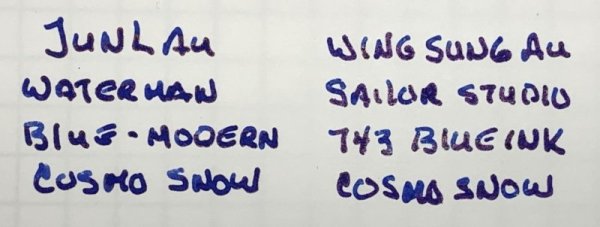 JUNLAu
WATERMAN
BLUE-MODERN
COSMO SNOW
WING SUNG Au
SAILOR STUDIO
743 BLUE INK
COSMO SNOW